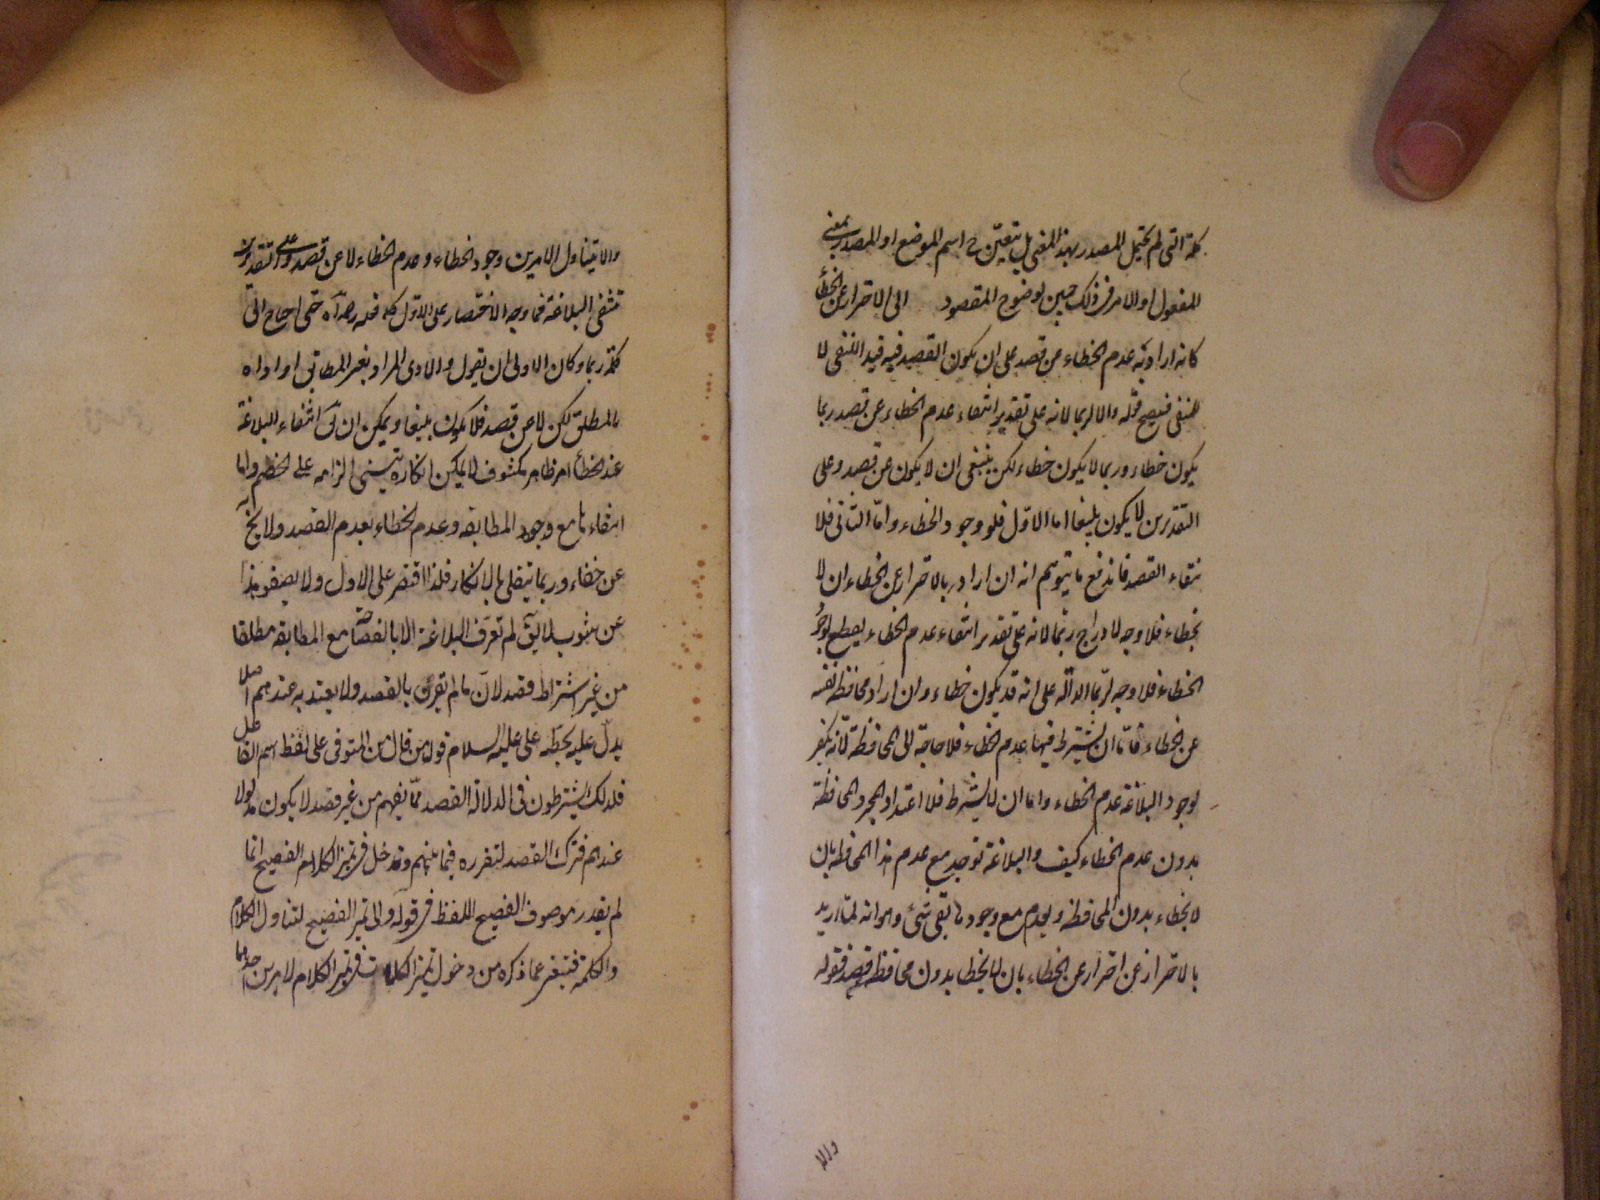 كلمة التي لم يحتمل المصدر بهذا المعنى بل يتعين اسم الموضع او المصدر بمعنى
المفعول او الامر في ذلك هين لوضوح المقصود الى الاحتراز عن الخطأ
كانه اراد به عدم الخطاء عن قصد على ان يكون القصد فيه قيد النفى لا
المنفى فيصح قوله والا لربما لانه على تقدير انتفاء عدم الخطاء عن قصد ربما
يكون خطاء وربما لا يكون خطاء لكن ينبغى ان لا يكون عن قصد وعلى
التقديرين لا يكون بليغا اما الاول فلوجود الخطاء واما الثانى فلا
نتفاء القصد فاندفع ما يتوهم انه ان اراد بالاحتراز عن الخطاء ان لا
يخطاء فلا وجه لادراج ربما لانه على تقدير انتفاء عدم الخطاء يقطع بوجود
الخطاء فلا وجه لربما الدالة على انه قد يكون خطاء وان اراد محافظة نفسه
عن الخطاء فاما ان يشترط فيها عدم الخطاء فلا حاجة الى المحافظة لانه يكفى
لوجود البلاغة عدم الخطاء واما ان لا يشترط فلا اعتداد بمجرد المحافظة
بدون عدم الخطاء كيف والبلاغة توجد مع عدم هذا المحافظة بان
لا يخطاء بدون المحافظة ويعدم مع وجودها بقى شئ وهو انه لما اريد
بالاحتراز عن احتراز عن الخطاء بان لا يخطا بدون محافظة قصد فقوله
والا
والا يتناول الامرين وجود الخطاء وعدم الخطاء لا عن قصد وعلى تقدير
تنتفى البلاغة فما وجه الاختصار على الاول كله قوله رحه الله حتى احتاج الى
كلمة ربما وكان الاولى ان يقول والا ادى المراد بغير المطابق او اداه
بالمطابق لكن لا عن قصد فلا يكون بليغا ويمكن ان يق انتفاء البلاغة
عند الخطأ امر ظاهر مكشوف لا يمكن انكاره يتسنى الزامه على الخصم واما
انتفاءها مع وجود المطابقة وعدم الخطاء بعدم القصد ولا يخ
عن خفاء وربما يتلقى بالانكار فلذا اقتصر على الاول ولا يصفو هذا
عن شوب لا يق لم تعرف البلاغة الا بالفصاحة مع المطابقة مطلقا
من غير اشتراط قصد لان ما لم يقرن بالقصد ولا يعتد به عندهم اصلا
يدل عليه تخطئة على عليه السلام قول من قال من المتوفى على لفظ اسم الفاعل
فلذلك يشترطون فى الدلالة القصد فما يفهم من غير قصد لا يكون مدلولا
عندهم فترك القصد لتقرره فيما بينهم وقد دخل فى تميز الكلام الفصيح انما
لم يقدر موصوف الفصيح اللفظ فى قوله والى تميز الفصيح لتناول الكلام
والكلمة فيستغنى عما ذكره من دخول تميز الكلمات فى تميز الكلام لامرين احدهما